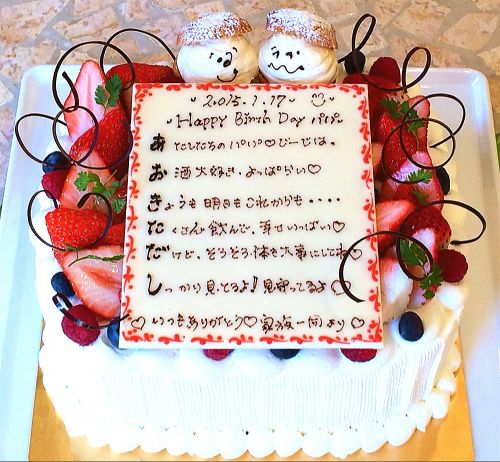 2015.1.17
Happy Birth Day パパ
あたしたちの パパ♡じーじは、
お酒大好き、よっぱらい♡
きょうも 明日も これからも・・・・
たくさん飲んで、幸せいっぱい♡
だけど、そろそろ体も大事にしてね
しっかり見てるよ♪見守ってるよ
♡いつもありがとう♡家族一同より♡